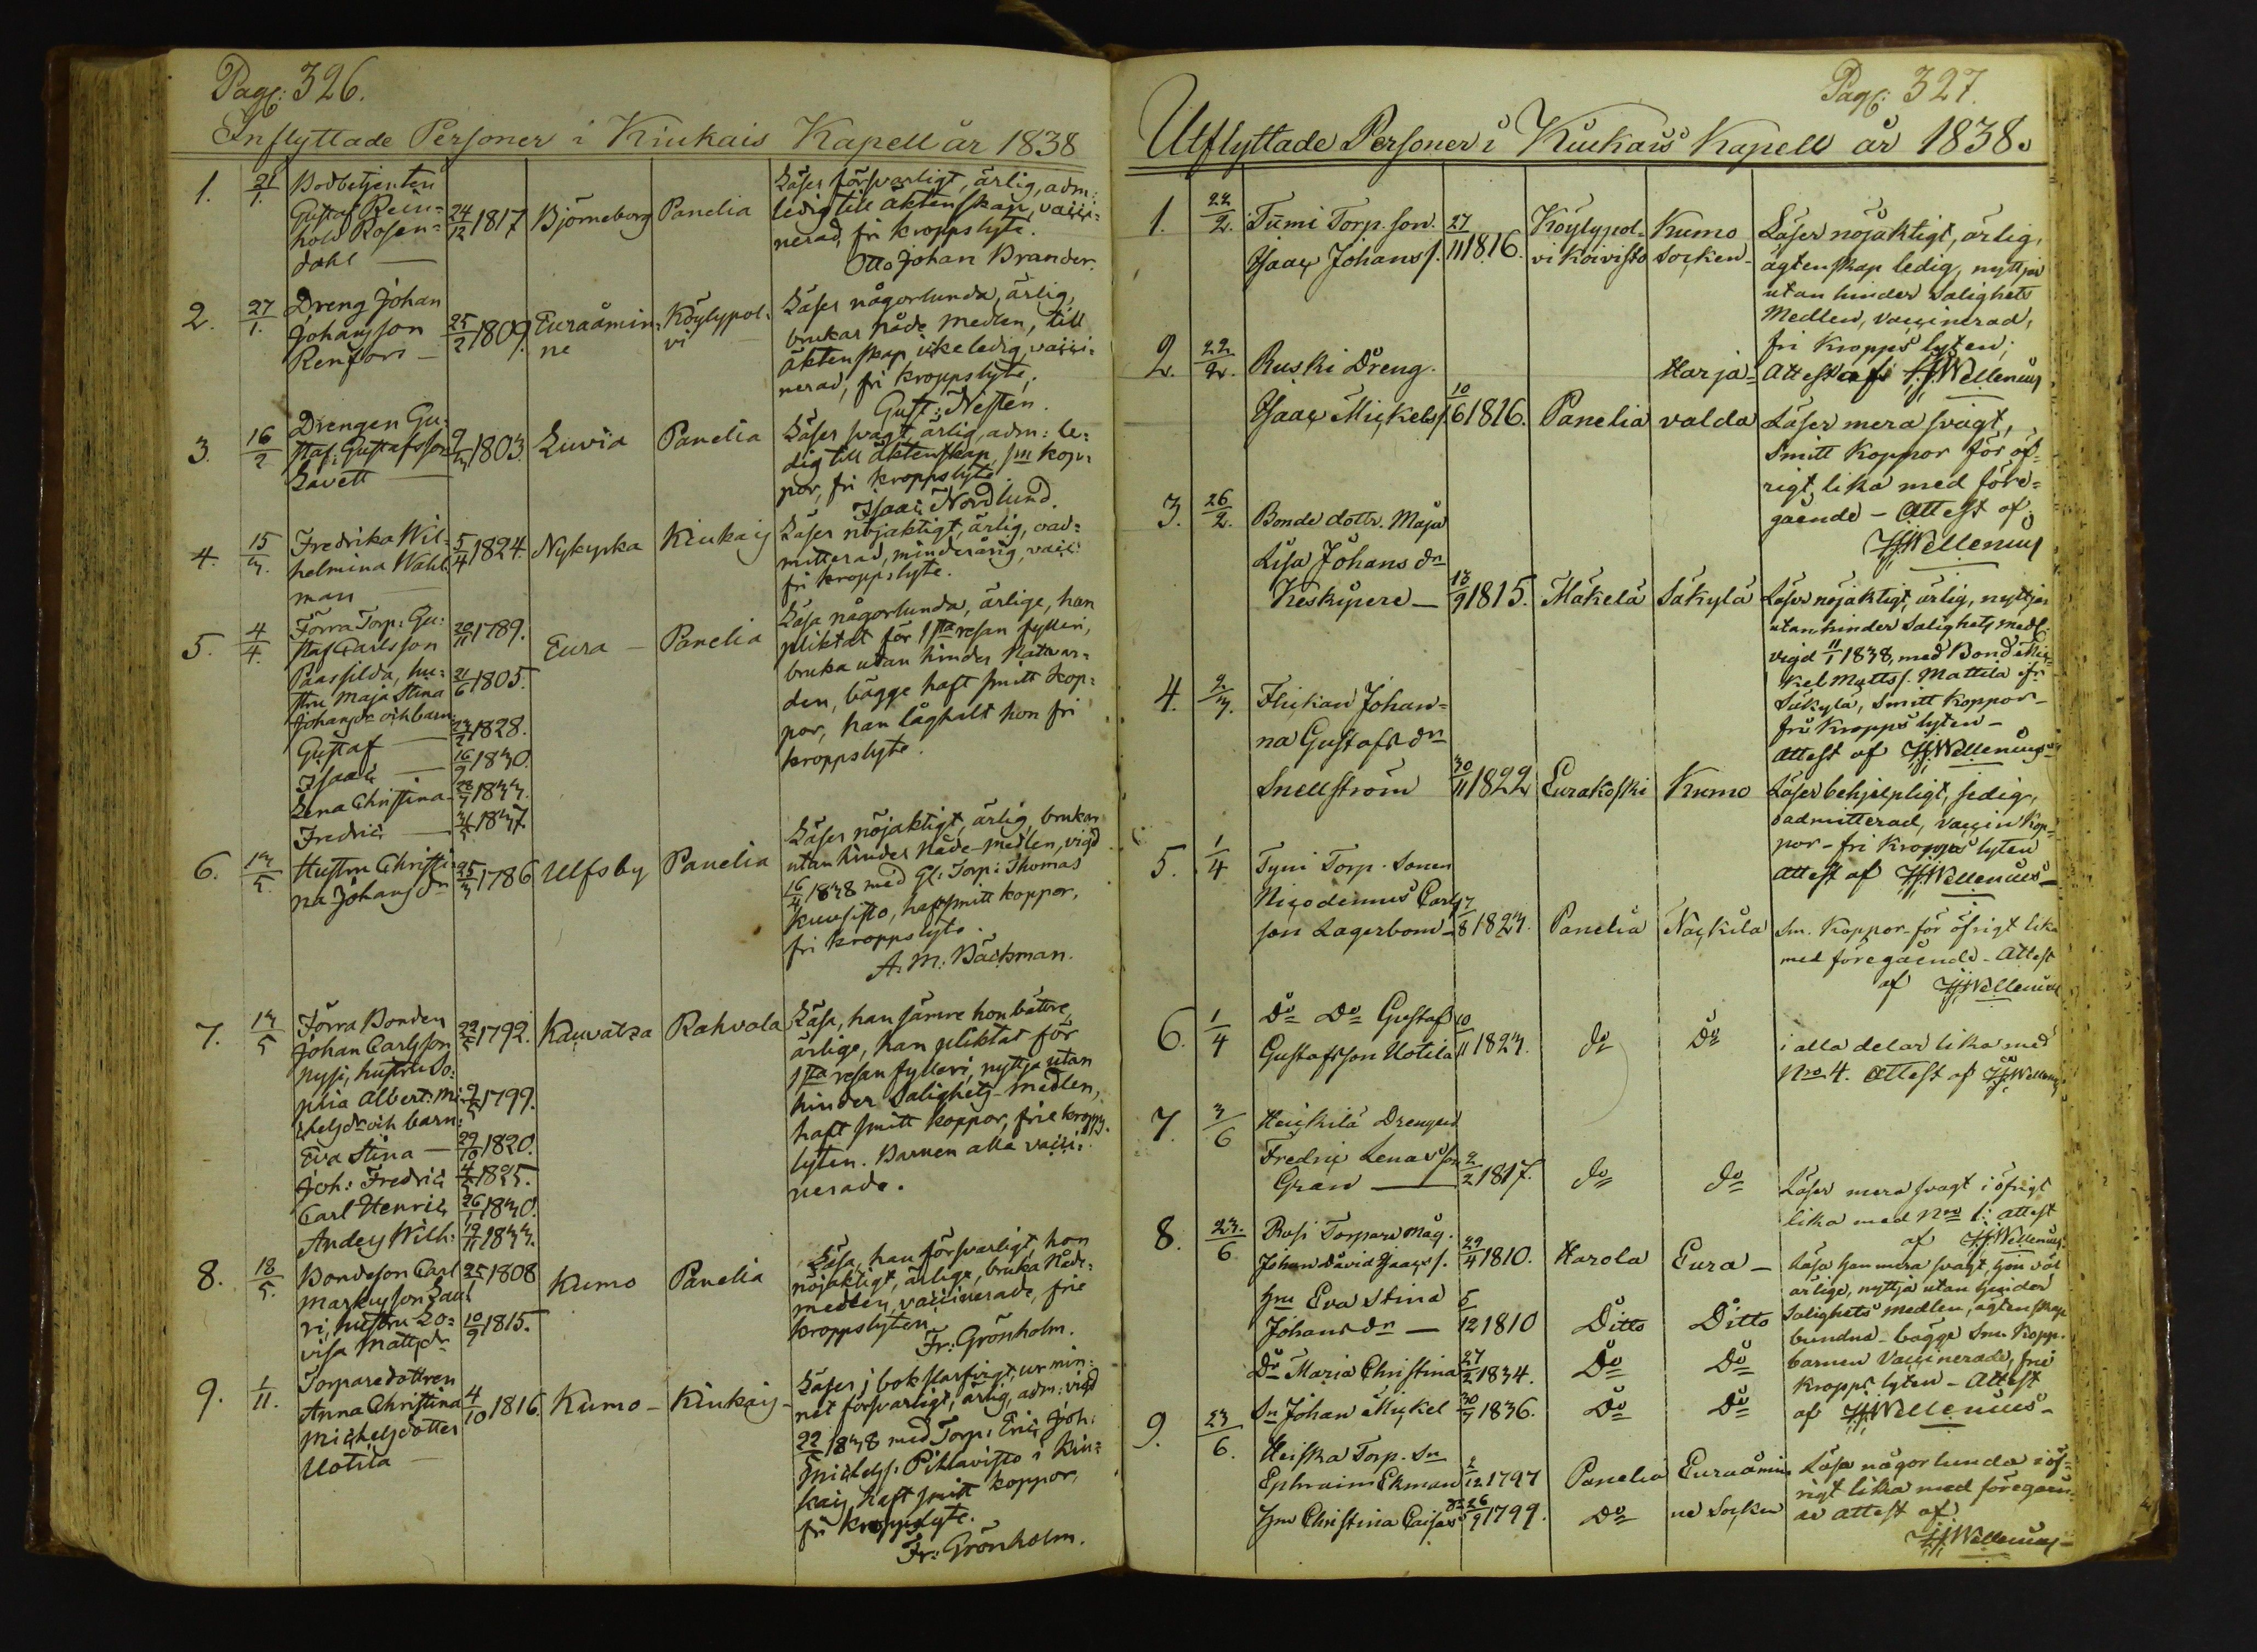 Pag: 326.
Inflyttade Personer i Kiukais Kapell år 1838
1. 21/1. Bodbetjenten
Gustaf Rein=
hold Rosen=
dahl —
24/12 1817
Björneborg
Panelia
Läser försvarligt, ärlig, adm:
ledig till äktenskap, vacci=
nerad, fri kroppslyte.
Otto Johan Brander.
2. 27/1. Dreng Johan
Johansson
Renfors —
25/2 1809.
Euraåmin=
ne
Köylypol=
vi
Läser någorlunda, ärlig,
brukar nåde medlen, till
äktenskap icke ledig, vacci=
nerad, fri kroppslyte.
Gust: Nesten.
3. 16/2 Drengen Gu=
staf Gustafsson
Lavett —
1803.
Luvia
Panelia
Läser svagt, ärlig, adm: le=
dig till äktenskap, sm kop=
por, fri kroppslyte
Isaac Nordlund.
4. 15/3. Fredrika Wil=
helmina Wahl=
man —
5/4 1824.
Nykyrka
Kiukais
Läser nöjaktigt, ärlig, oad=
mitterad, minderårig, vacc:
fri kroppslyte.
5. 4/4. Förra Torp: Gu=
staf Carlsson
Paassilda, hu=
stru Maja Stina
Johansdr och barn:
Gustaf —
Isaac —
Lena Christina
Fredric —
20/11 1789.
21/6 1805.
23/2 1828.
16/9 1830.
1833.
1837.
Eura —
Panelia
Läsa någorlunda, ärlige, han
pliktat för 1sta resan fylleri,
bruka utan hinder Nattvar=
den, bägge haft smitt kop=
por, han låghalt hon fri
kroppslyte.
6. 13/5. Hustru Christi=
na Johansdr
25/3 1786
Ulfsby
Panelia
Läser nöjaktigt, ärlig, brukar
utan hinder Nåde-medlen, vigd
16/4 1838 med Gl: Torp: Thomas
Kuusisto, haft smitt koppor,
fri kroppslyte.
A. M. Bäckman.
7. 13/5 Förra Bonden
Johan Carlsson
Nysi, hustru So=
phia Albert: Mi=
chelsdr och barn:
Eva Stina —
Joh: Fredric
Carl Henric
Anders Wilh:
22/5 1792.
1799.
29/10 1820.
1825.
26/1 1830.
19/11 1833.
Kauvatsa
Rahvala
Läsa, han sämre hon bättre,
ärlige, han pliktat för
1sta resan fylleri, nyttja utan
hinder Salighets-medlen,
haft smitt koppor, frie kropps.
lyten. Barnen alla vacci=
nerade.
8. 18/5. Bondeson Carl
Markusson Lau=
ri, hustru Lo=
visa Mattsdr
25/1 1808
10/9 1815.
Kumo
Panelia
Läsa, han försvarligt, hon
nöjaktigt, ärlige, bruka Nåde=
medlen, vaccinerade, frie
kroppslyten.
Fr: Grönholm.
9. 1/11. Torparedottren
Anna Christina
Michelsdotter
Uotila —
4/10 1816.
Kumo —
Kiukais —
Läser i bok slarfvigt, ur min=
net försvarligt, ärlig, adm: vigd
22/5 1838 med Torp: Eric Joh:
Michels: Pihlavisto i Kiu=
kais, haft smitt koppor,
fri kroppslyte.
Fr: Grönholm.
Pag: 327.
Utflyttade Personer i Kiukais Kapell år 1838.
1. 22/2. Tumi Torp. son.
Isaac Johans s.
27/11 1816.
Köylypol=
vi Koivisto
Kumo
Socken
Läser nöjaktigt, ärlig,
ägtenskap ledig, nyttjar
utan hinder Salighets
Medlen, vaccinerad,
fri Kropps lyten;
Attest af HJWellenius
2. 22/2. Ruski Dreng.
Isaac Mickels s.
10/6 1816.
Panelia
Harja=
valda
Läser mera svagt,
Smitt Koppor för öf=
rigt, lika med före=
gående — Attest af
HJWellenius
3. 26/2. Bonde dottr. Maja
Lisa Johans dr
Keskipere —
13/9 1815.
Mäkelä
Säkylä
Läser nöjaktigt, ärlig, nyttjar
utan hinder Salighets medl.
vigd 11/1 1838, med Bond Mic=
kel Matts s. Mattila ifr.
Säkylä, Smitt Koppor —
fri Kropps lyten —
Attest af HJWellenius
4. 2/3. Flickan Johan=
na Gustafs dr
Snellström
30/11 1822
Eurakoski
Kumo
Läser behjelpligt, sedig,
oadmitterad, vaccin Kop=
por — fri Kropps lyten
Attest af HJWellenius —
5. 1/4 Tyni Torp. Sonen
Nicodemus Carls
son Lagerbom —
7/8 1823.
Panelia
Nackila
Sm. Koppor — för öfrigt lika
med föregående — Attest
af HJWellenius
6. 1/4 Do Do Gustaf
Gustafsson Uotila
10/11 1823.
do
Do
i alla delar lika med
Nro 4. Attest af HJWellenius
7. 3/6 Heickilä Drengen
Fredric Lenasson
Gran —
2/2 1817.
do
do
Läser mera svagt i öfrigt
lika med Nro 1: Attest
af HJWellenius
8. 23/6 Rosi Torpare Måg.
Johan David Isaacs s.
29/4 1810.
Harola
Eura —
Hru Eva Stina
Johansdr —
5/12 1810
Ditto
Ditto
Dr Maria Christina
27/2 1834.
Do
Do
Sn Johan Mickel
1836.
Do
Do
Läsa han mera svagt, hon väl
ärlige, nyttja utan hinder
Salighets medlen, ägtenskap
bundna — bägge Sm. Kopp.
barnen vaccinerade, frie
Kropps lyten — Attest
af HJWellenius —
9. 23/6. Heiska Torp. Sn
Ephraim Ekman
1/12 1797
Panelia
Euraåmin=
Hru Christina Caisas dr
26/9 1799.
Do
ne Socken
Läsa någorlunda i öf=
rigt lika med föregåen=
de Attest af
HJWellenius —